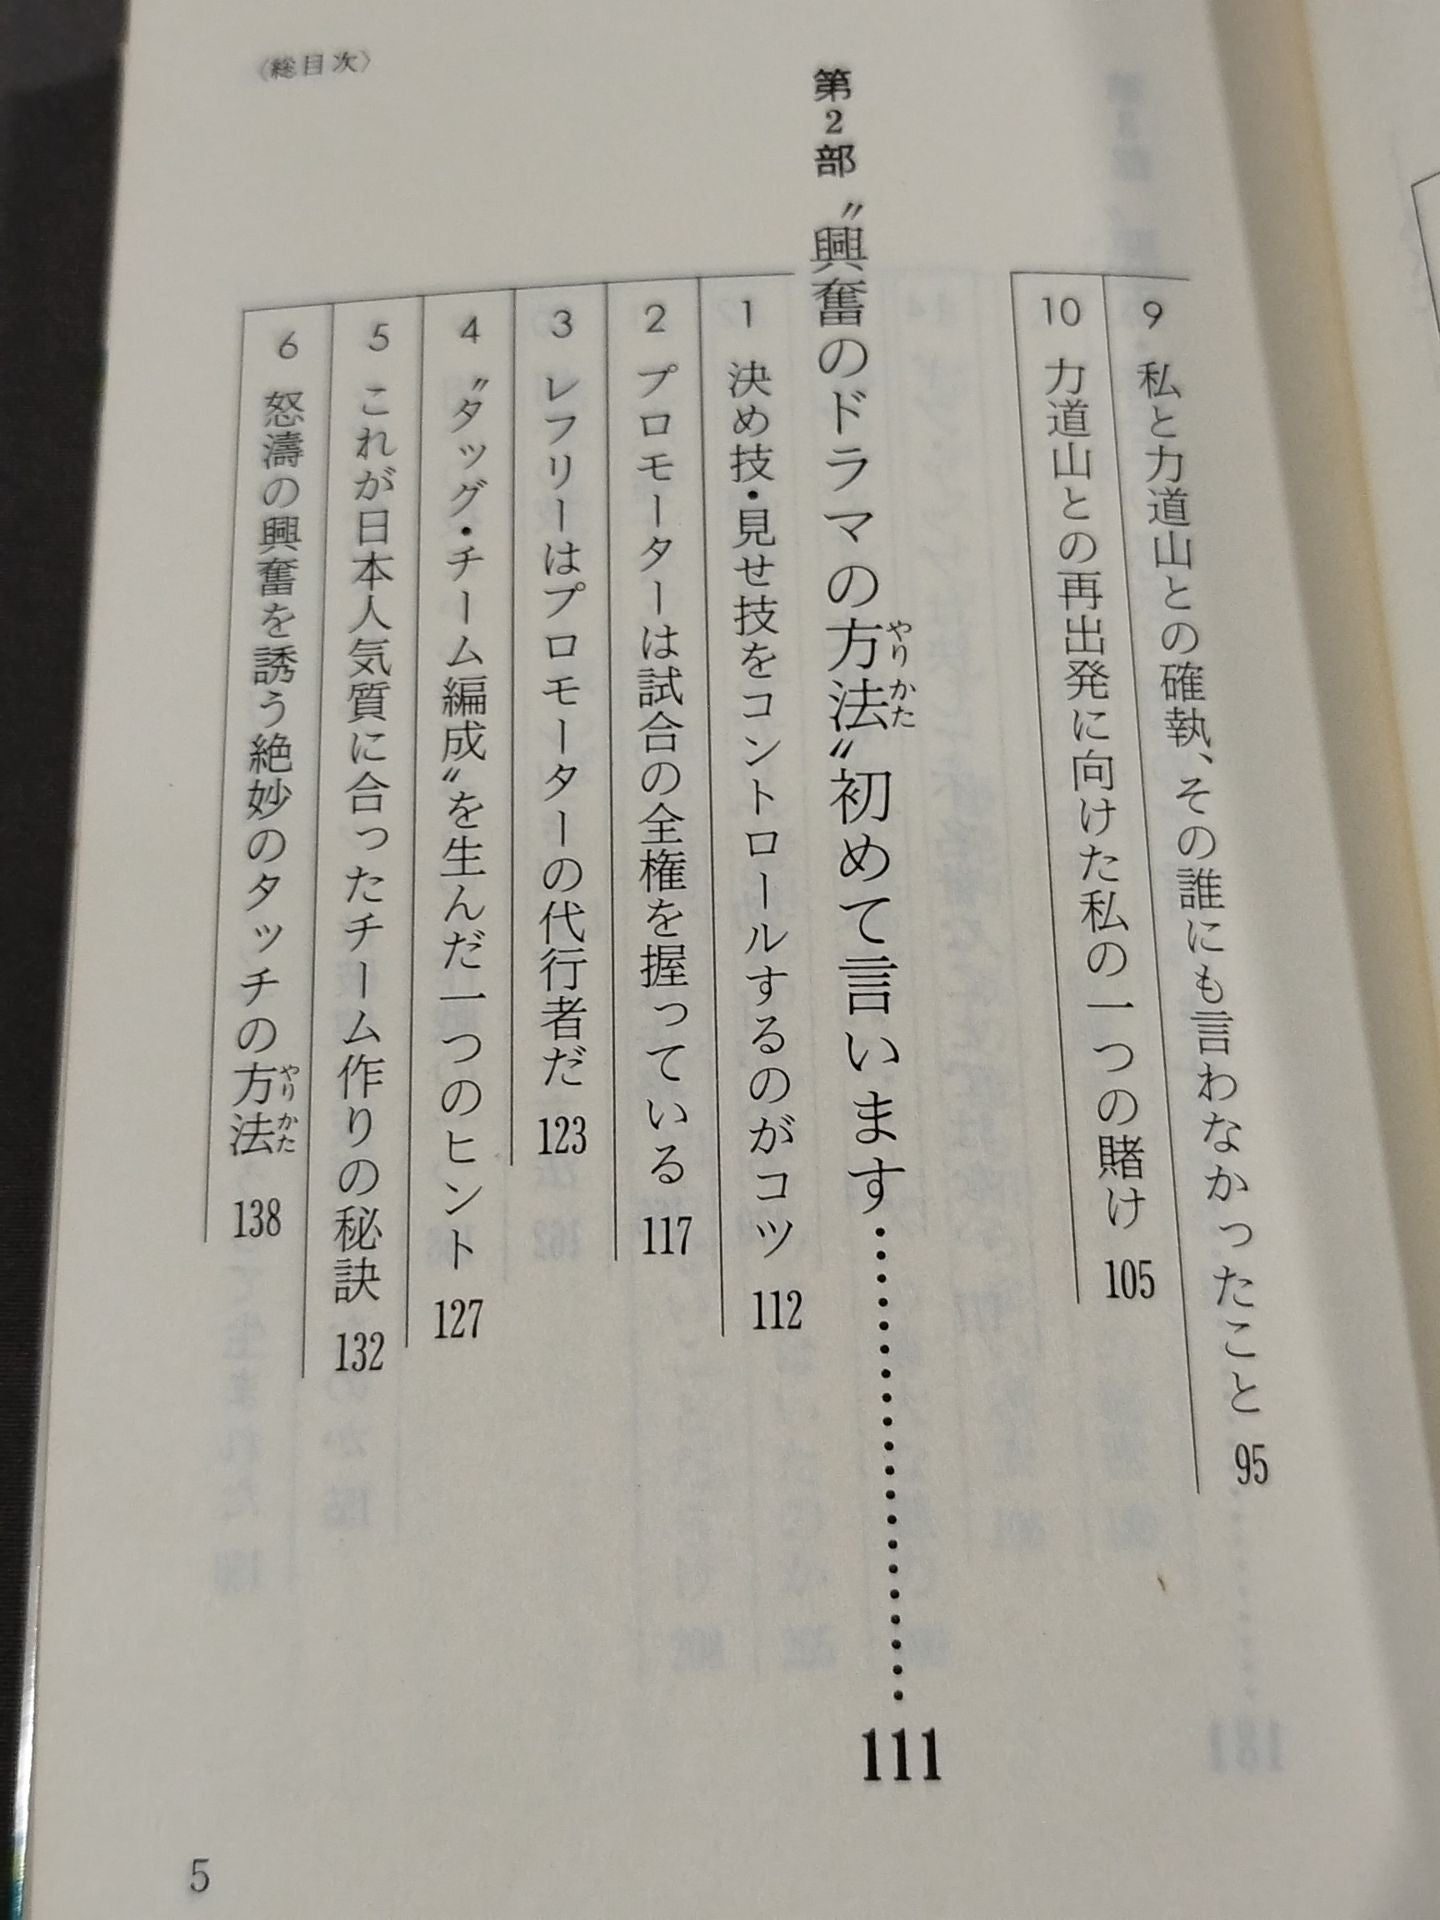 〈総目次〉
9 私と力道山との確執、その誰にも言わなかったこと 95
10 力道山との再出発に向けた私の一つの賭け 105
第2部 〝興奮のドラマの方法〟初めて言います………… 111
やり かた
1 決め技・見せ技をコントロールするのがコツ 112
2 プロモーターは試合の全権を握っている 117
3 レフリーはプロモーターの代行者だ 123
4 〝タッグ・チーム編成〟を生んだ一つのヒント 127
5 これが日本人気質に合ったチーム作りの秘訣 132
6 怒濤の興奮を誘う絶妙のタッチの方法 138
やり かた
5